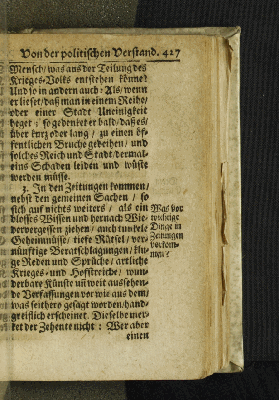 Von der politischen Verstand. 427
Mensch/ was aus der Teilung des
Krieges-Volks entstehen könne?
Und so in andern auch: Als/ wenn
er lieset/ daß man in einem Reiche/
oder einer Stadt Uneinigkeit
heget: so gedenket er bald/ daß es/
über kurz oder lang/ zu einen öf-
fentlichen Bruche gedeihen/ und
solches Reich und Stadt/ dermal-
eins Schaden leiden und wüste
werden müsse.
3. In den Zeitungen kommen/
nebst den gemeinen Sachen/ so
sich auf nichts weiters/ als ein
blosses Wissen und hernach Wie-
dervergessen ziehen/ auch tunkele
Geheimnüsse/ tiefe Rätsel/ ver-
nünftige Beratschlagungen/ klu-
ge Reden und Sprüche/ artliche
Krieges- und Hofstreiche/ wun-
derbare Künste und weit aussehen-
de Verfassungen vor wie aus dem/
was seithero gesagt worden/ hand-
greiflich erscheinet. Dieselbe mer-
ket der Zehente nicht: Wer aber
einen
Was vor
wichtige
Dinge in
Zeitungen
vorkom-
men?